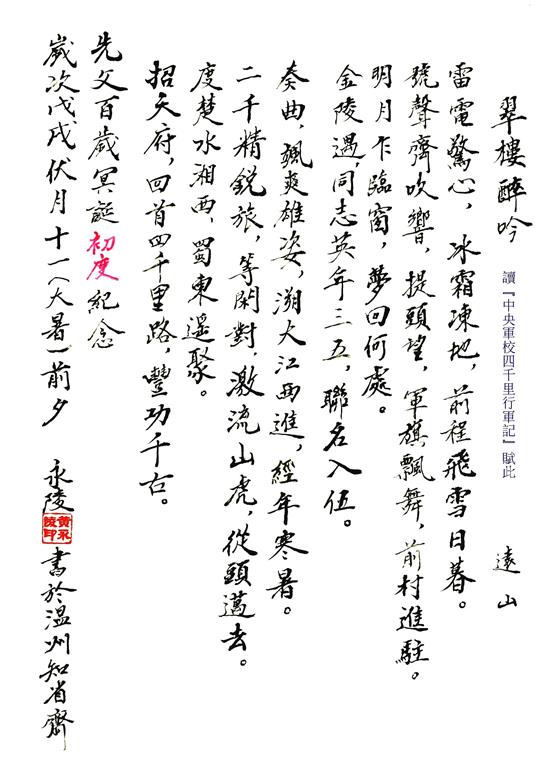 翠樓醉吟 讀『中央軍校四千里行軍記』賦此 遠山
雷電驚心,冰霜凍地,前程飛雪日暮。
號聲齊吹響,提頭望,軍旗飄舞,前村進駐。
明月乍臨窗,夢回何處。
金陵遇,同志英年三五,聯名入伍。
奏曲,颯爽雄姿,溯大江西進,經年寒暑。
二千精銳旅,等閑對,激流山虎,從頭邁去。
度楚水湘西,蜀東遙聚。
招天府,回首四千里路,豐功千古。
先父百歲冥誕初度紀念
歲次戊戌伏月十一(大暑)前夕 永陵 黄永陵印 書於溫州知省齋